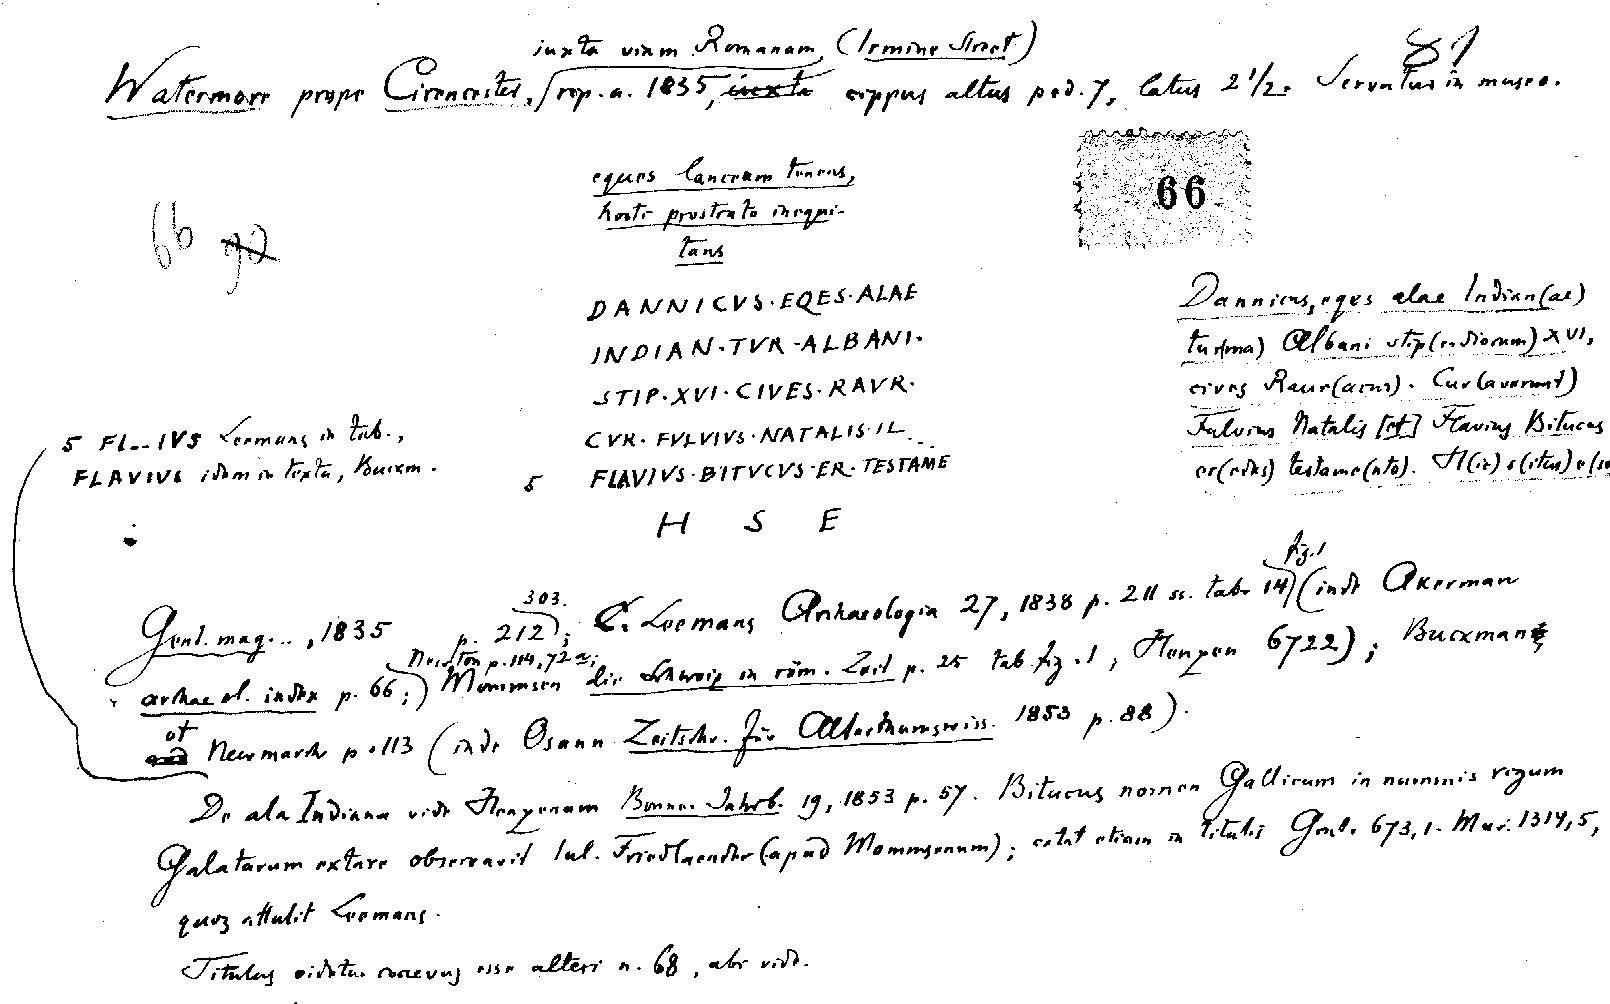 iuxta viam Romanam (Irmine Street)
81
Watermore prope Cirencester, rep. a. 1835, iuxta cippus altus ped. 7, latus 2 1/2. Servatus in museo.
eques lanceam tenens,
hoste prostrato inequi-
tans
66
66 92
DANNICVS·EQES·ALAE
INDIAN·TVR·ALBANI·
STIP·XVI·CIVES·RAVR·
CVR·FVLVIVS·NATALIS·IL...
5 FLAVIVS·BITVCVS·ER·TESTAME
H S E
Dannicus, eques alae Indian(ae)
tur(ma) Albani stip(endiorum) XVI,
cives Raur(acus). Cur(averunt)
Fulvius Natalis [et] Flavius Bitucus
er(edes) testame(nto). H(ic) s(itus) e(s
5 FL..IVS Leemans in tab.,
FLAVIUS idem in textu, Bucxm.
303. fig. 1
Gent. mag..., 1835 p. 212; C. Leemans Archaeologia 27, 1838 p. 211 ss. tab. 14 (inde Akerman
Newton p. 114, 72 a;
archaeol. index p. 66; Mommsen die Schweiz in röm. Zeit p. 25 tab. fig. 1, Henzen 6722); Bucxman
et
and Newmarch p. 113 (inde Osann Zeitschr. für Alterthumswiss. 1853 p. 88).
De ala Indiana vide Henzenum Bonner Jahrb. 19, 1853 p. 57. Bitucus nomen Gallicum in nummis regum
Galatarum extare observavit Iul. Friedlaender (apud Mommsenum); extat etiam in titulis Grut. 673,1. Mur. 1314,5,
quos attulit Leemans.
Titulus videtur coaevus esse alteri n. 68, ubi vide.